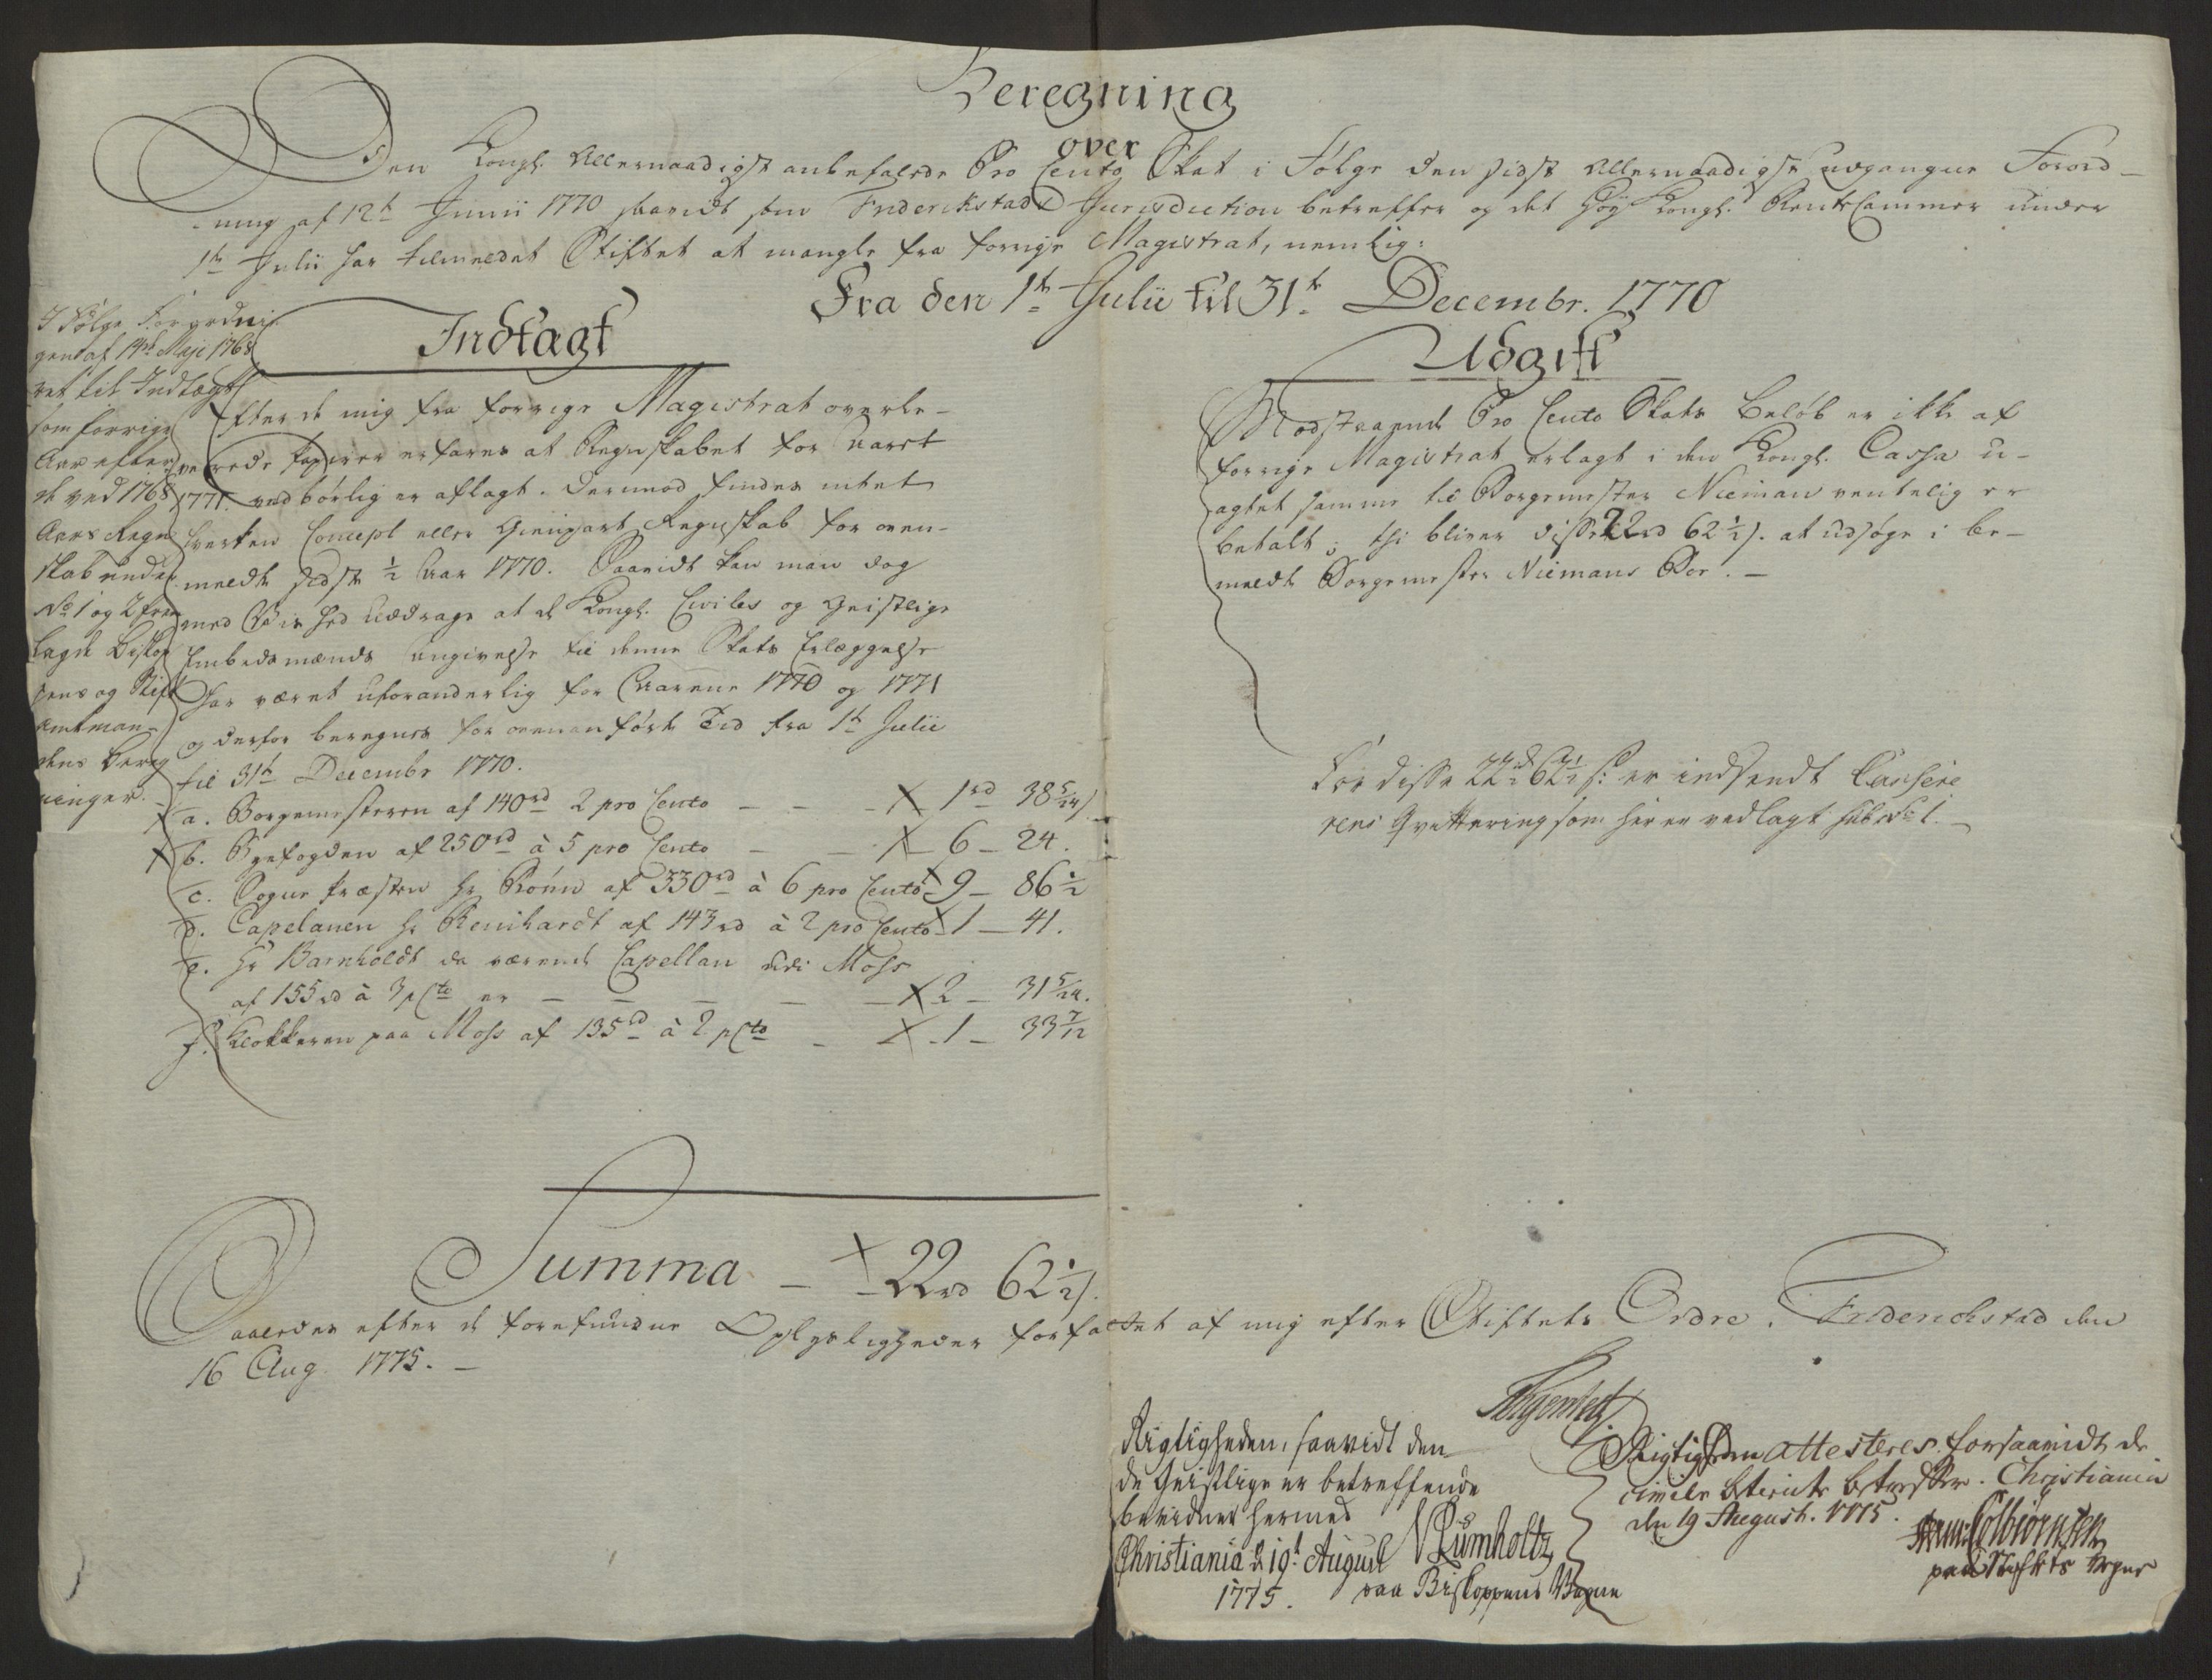 Beregning
over
Den Kongl. Allernaadigst anbefalede Pro Cento Skat i Følge den sidst Allernaadigst udgangne Forord-
ning af 12t Junii 1770 saavidt som Friderikstads Jurisdiction betreffer og det Høy Kongl. RenteCammer under
1t Julii har tilmeldet Stiftet at mangle fra forrige Magistrat, nemlig:
Fra den 1t Julii til 31t Decembr. 1770
I Følge Forordni-
gen af 14de Maji 1768
ret til Indtægt
som forrige
Aar efter
de ved 1768
Aars Regn
skab under
No 1 og 2 frem
lagde Biskop
pens og Stift
amtman-
dens Bereg
ninger.
Indtægt
Efter de mig fra forrige Magistrat overle-
verede Papirer erfares at Regnskabet for Aaret
1771. ved børlig er aflagt. Derimod findes intet
hverken Concept eller Gienpart Regnskab for oven-
meldte sidste ½ Aar 1770. Saavidt kan man dog
med Vished uddrage at de Kongl. Civiles og Geistlige
Embedsmænds Angivelse til denne Skats Erlæggelse
har været uforanderlig for Aarene 1770 og 1771
og derfor beregnes for ovenanførte Tid fra 1t Julii
til 31t Decembr 1770.
a. Borgemesteren af 140rd 2 pro Cento - - - X 1rd 38 5/24 s
X b. Byefogden af 250rd à 5 pro Cento - - X 6 - 24.
c. Sogne Præsten Hr Rønn af 330rd à 6 pro Cento X 9 - 86 ½
d. Capelanen Hr Reinhardt af 143rd à 2 pro Cento X 1 - 41.
e. Hr Barnholdt da værende Capellan udi Moss
af 155rd à 3 pCto er - - - - - X 2 - 31 5/24.
f. Klokkeren paa Moss af 135rd à 2 pCto - X - 1 - 33 7/12
Summa - X 22rd 62½ s.
Udgift
Modstaaende Pro Cento Skats Beløb er ikke af
forrige Magistrat erlagt i den Kongl. Cassa u-
agtet samme til Borgemester Nieman ventelig er
betalt; thi bliver disse 22rd 62½ s. at udsøge i be-
meldte Borgemester Niemans Boe. -
For disse 22rd 62½ s: er indsendt Casserer
rens Qvittering som her er vedlagt sub No 1. -
Saaledes efter de forefundne Oplysligheder forfattet af mig efter Stiftets Ordre. Friderichstad den
16 Aug. 1775. -
Rigtigheden, saavidt den
de Geistlige er betreffende
bevidner hermed
Christiania d. 19t August
1775.
N Rumholtz
paa Biskoppens Vegne
Rigtigheden attesteres forsaavidt de
civile Betiente betreffer. Christiania
den 19 August. 1775.
Colbiørnsen
paa Stiftets Vegne